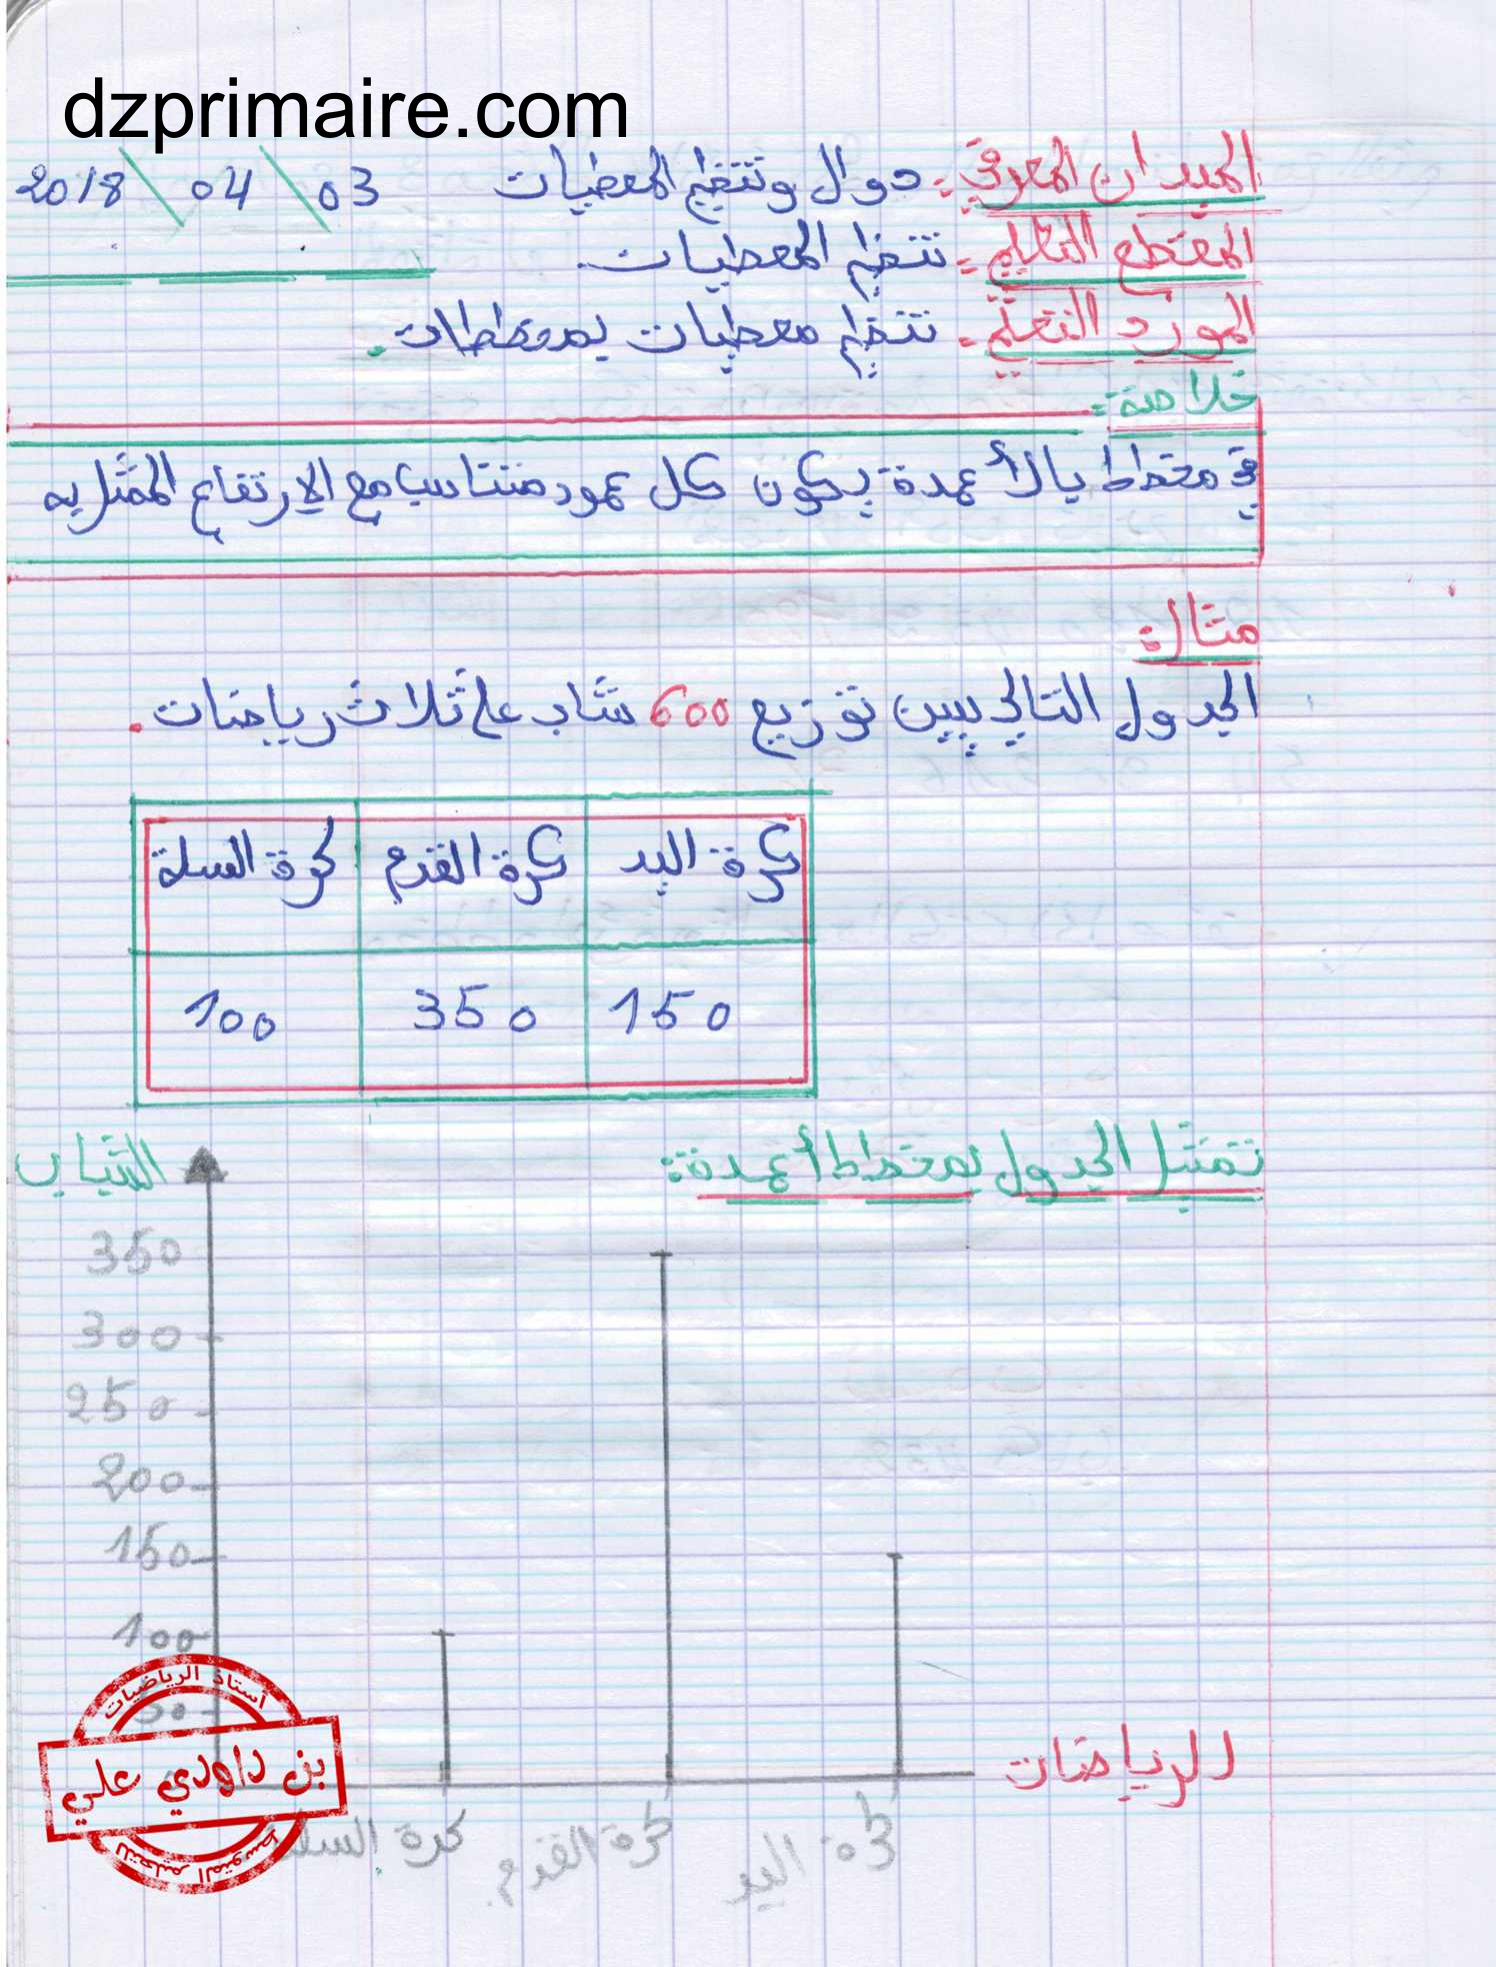 dzprimaire.com
الميدان المعرفي: دوال وتنظيم المعطيات 03 \ 04 \ 2018
المقطع التعليمي: تنظيم المعطيات.
المورد التعلّمي: تنظيم معطيات بمخططات.
خلاصة:
في مخطط بالأعمدة يكون كل عمود متناسب مع الارتفاع الممثل به
مثال:
الجدول التالي يبين توزيع 600 شاب على ثلاث رياضات.
كرة اليد كرة القدم كرة السلة
150 350 100
تمثيل الجدول بمخطط أعمدة:
الشباب
350
300
250
200
150
100
50
الرياضات
كرة السلة كرة القدم كرة اليد
أستاذ الرياضيات
بن داودي علي
للتعليم المتوسط